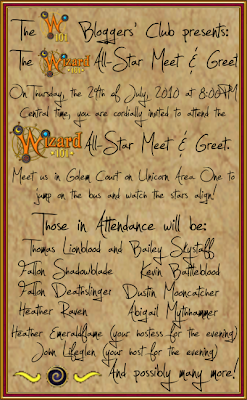 The W 101 Bloggers' Club presents:
The Wizard 101 All-Star Meet & Greet
On Thursday, the 29th of July, 2010 at 8:00PM
Central time, you are cordially invited to attend the
Wizard 101 All-Star Meet & Greet.
Meet us in Golem Court on Unicorn Area One to
jump on the bus and watch the stars align!
Those in Attendance will be:
Thomas Lionblood and Bailey Slystaff
Fallon Shadowblade Kevin Battleblood
Fallon Deathslinger Dustin Mooncatcher
Heather Raven Abigail Mythhammer
Heather Emeraldflame (your hostess for the evening)
John Lifeglen (your host for the evening)
And possibly many more!